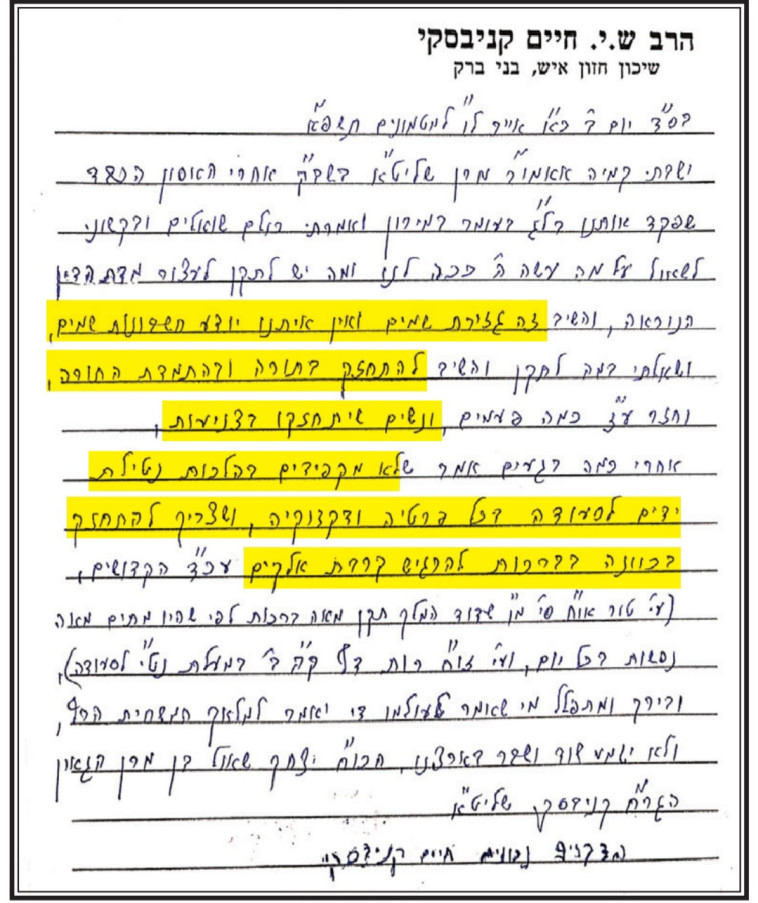 הרב ש.י. חיים קניבסקי
שיכון חזון איש, בני ברק
בס"ד יום ב' כ"א אייר ל"ו למטמונים תשפ"א
ישבתי קמיה אאמו"ר מרן שליט"א בשבה"ק אחרי האסון הכבד
שפקד אותנו בל"ג בעומר במירון ואמרתי כולם שואלים ובקשוני
לשאול על מה עשה ה' ככה לנו ומה יש לתקן לעצור מדת הדין
הנוראה, והשיב זה גזירת שמים ואין איתנו יודע חשבונות שמים,
ושאלתי במה לתקן והשיב להתחזק בתורה ובהתמדת התורה,
וחזר ע"ז כמה פעמים, ונשים שיתחזקו בצניעות,
אחרי כמה רגעים אמר שלא מקפידים בהלכות נטילת
ידים לסעודה בכל פרטיה ודקדוקיה, ושצריך להתחזק
בכוונה בברכות להרגיש קרבת אלקים עכ"ד הקדושים,
(עי' טור או"ח סי' מ"ו שדוד המלך תקן מאה ברכות לפי שהיו מתים מאה
נפשות בכל יום, ועי' זו"ח רות דף ק"ה ב' במעלת נט"י לסעודה),
ובירך ומתפלל מי שאומר לעולמו די יאמר למלאך המשחית הרף,
ולא יגמע שוד ושבר בארצנו, הכו"ח יצחק שאול בן מרן הגאון
הגר"ח קניבסקי שליט"א
הדברים נכונים חיים קניבסקי